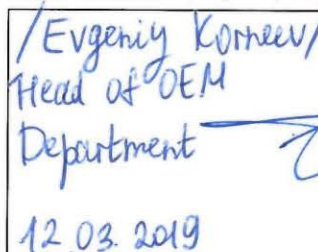 /Evgeniy Korneev/
Head of OEM
Department
12 03. 2019